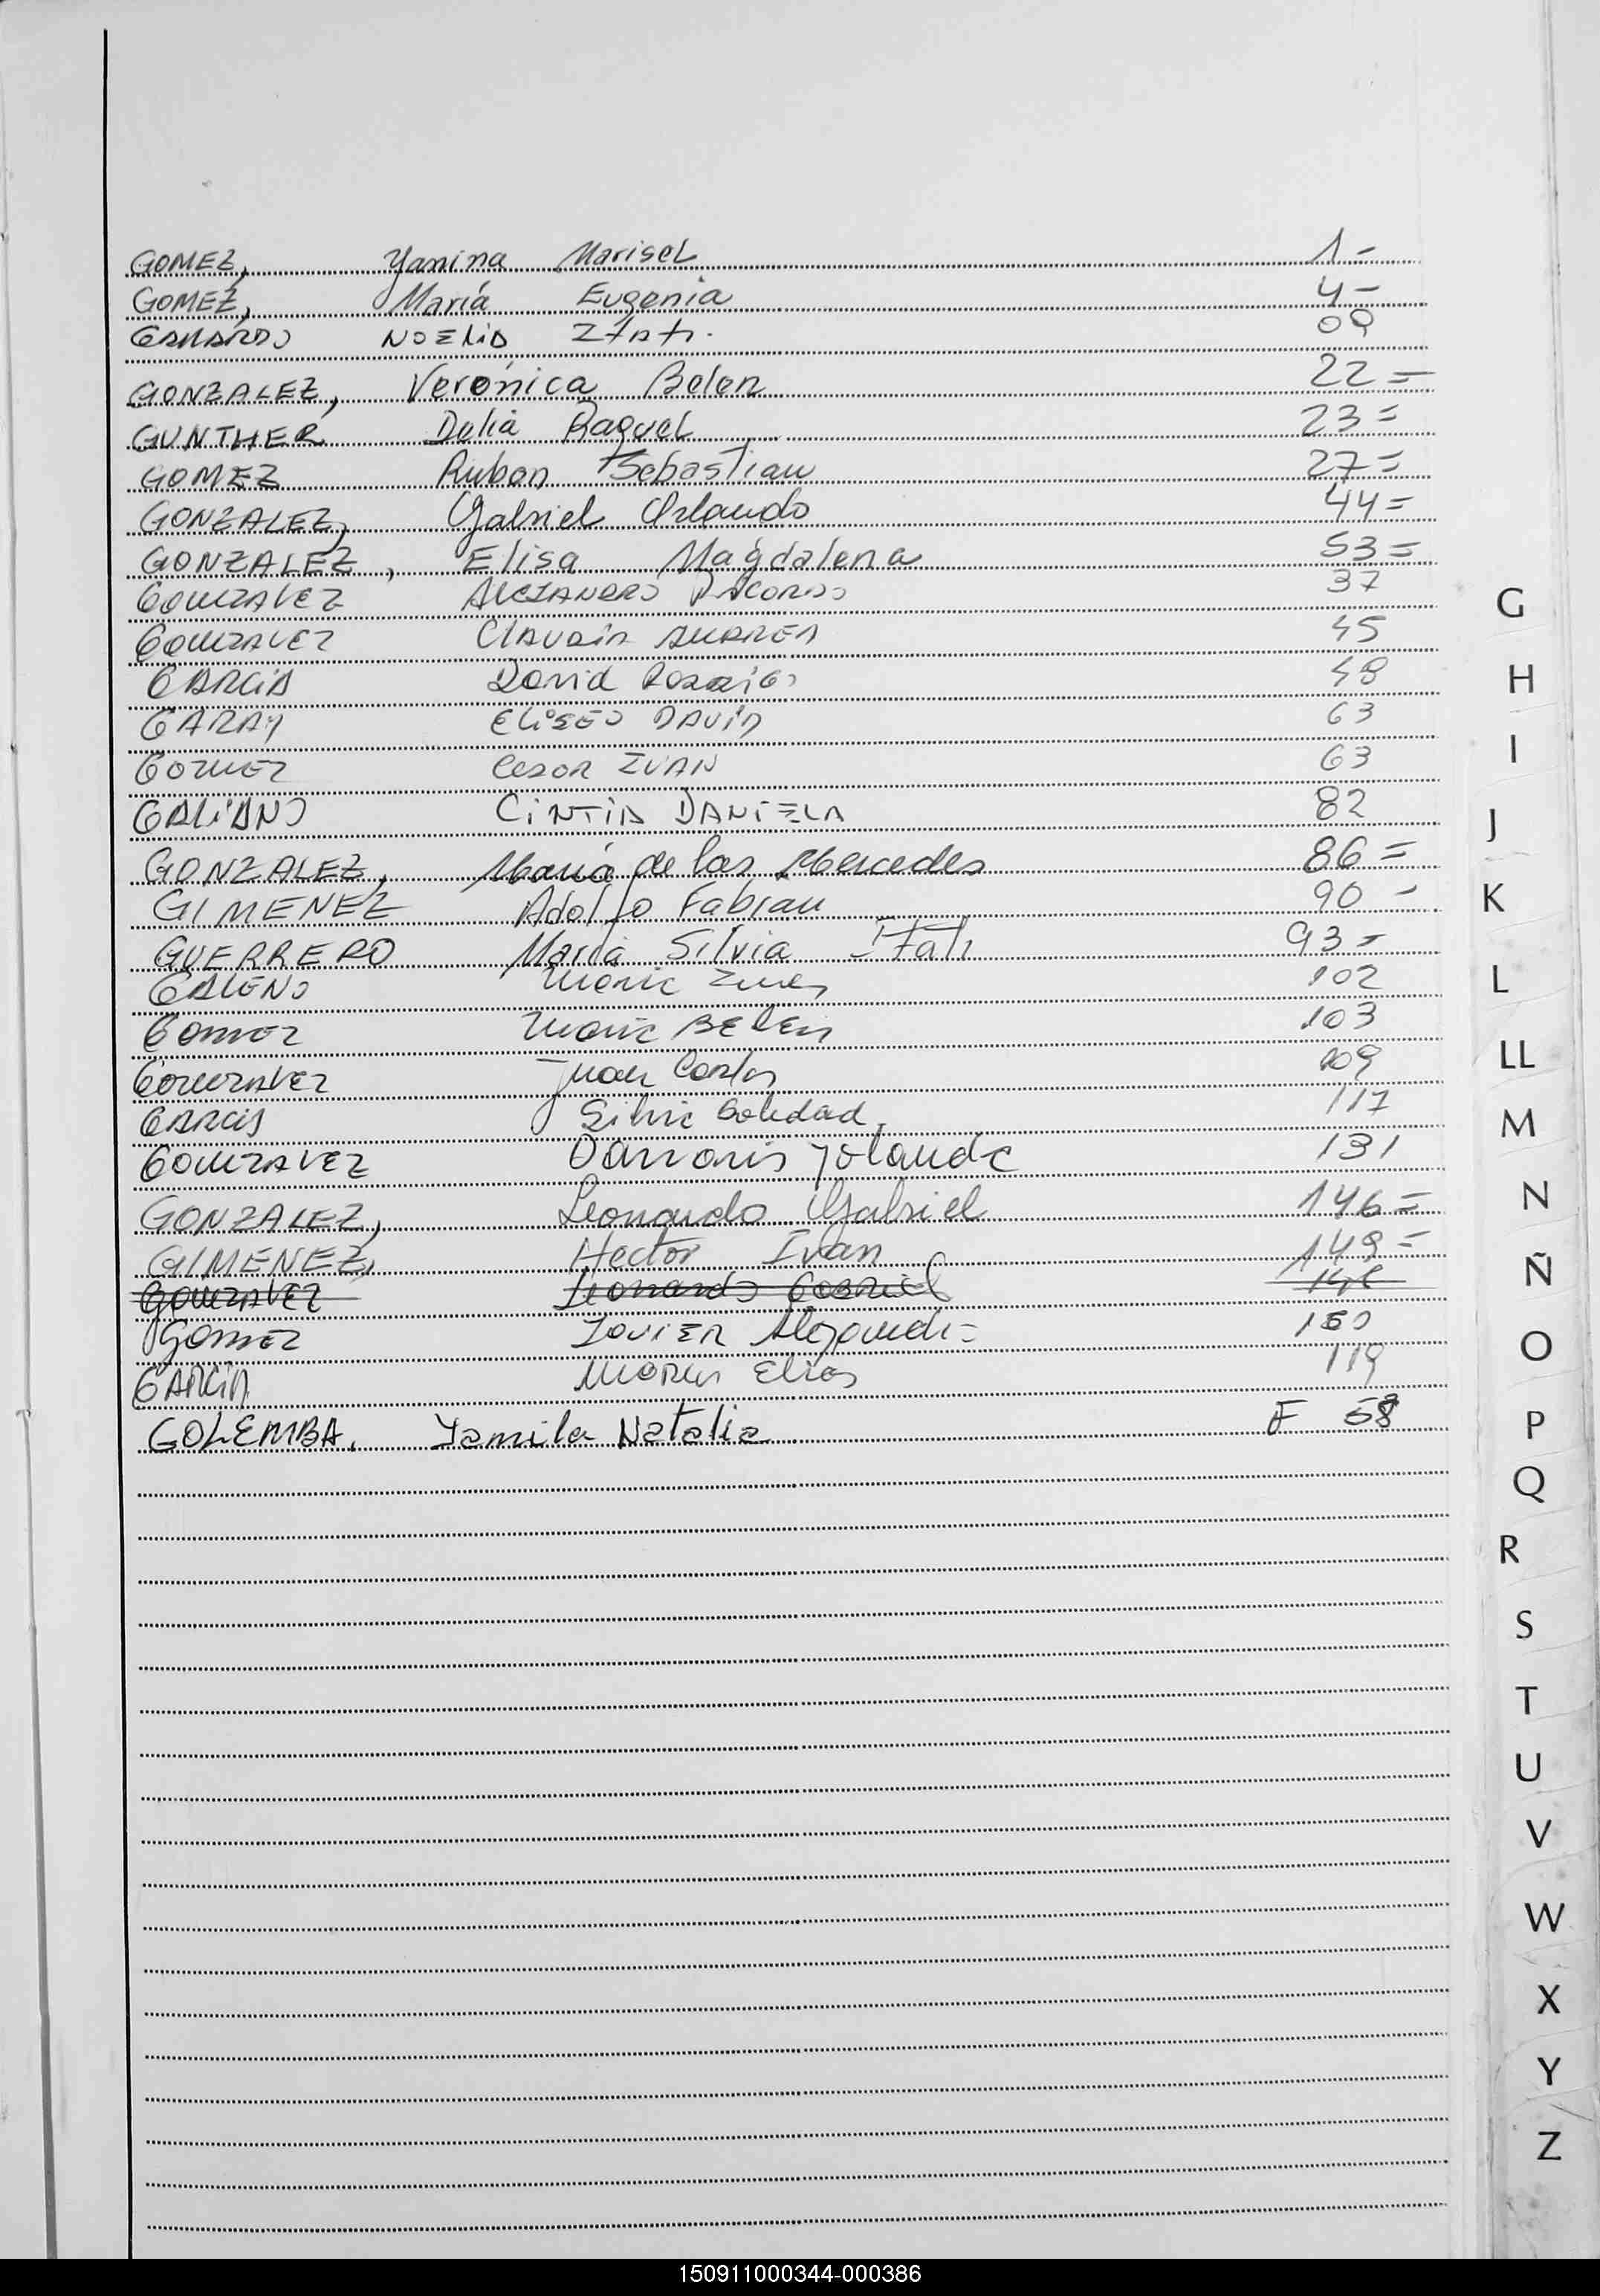 GOMEZ, Yanina Marisel 1-
GOMEZ, María Eugenia 4-
NOELIA 09
GONZALEZ, Verónica Belen 22=
GUNTHER Delia Raquel 23=
GOMEZ Ruben Sebastian 27=
GONZALEZ, Gabriel Orlando 44=
GONZALEZ, Elisa Magdalena 53=
GONZALEZ ALEJANDRO RICARDO 37
GONZALEZ CLAUDIA ANDREA 45
GARCIA David 48
GARAY ELISEO DAVID 63
GOMEZ Cesar IVAN 63
GALIANO CINTIA DANIELA 82
GONZALEZ, María de las Mercedes 86=
GIMENEZ Adolfo Fabian 90-
GUERRERO María Silvia Itatí 93=
GALENO Maria Ines 102
Gomez Maria BELEN 103
GONZALEZ Juan Carlos 109
GARCIA Silvia Soledad 117
GONZALEZ Damaris Yolanda 131
GONZALEZ, Leonardo Gabriel 146=
GIMENEZ, Hector Ivan 149=
GONZALEZ Leonardo Gabriel
Gomez JAVIER Alejandro 150
GARCIA Elias 119
GOLEMBA. Yamila Natalia F 58
G
H
I
J
K
L
LL
M
N
Ñ
O
P
Q
R
S
T
U
V
W
X
Y
Z
150911000344-000386